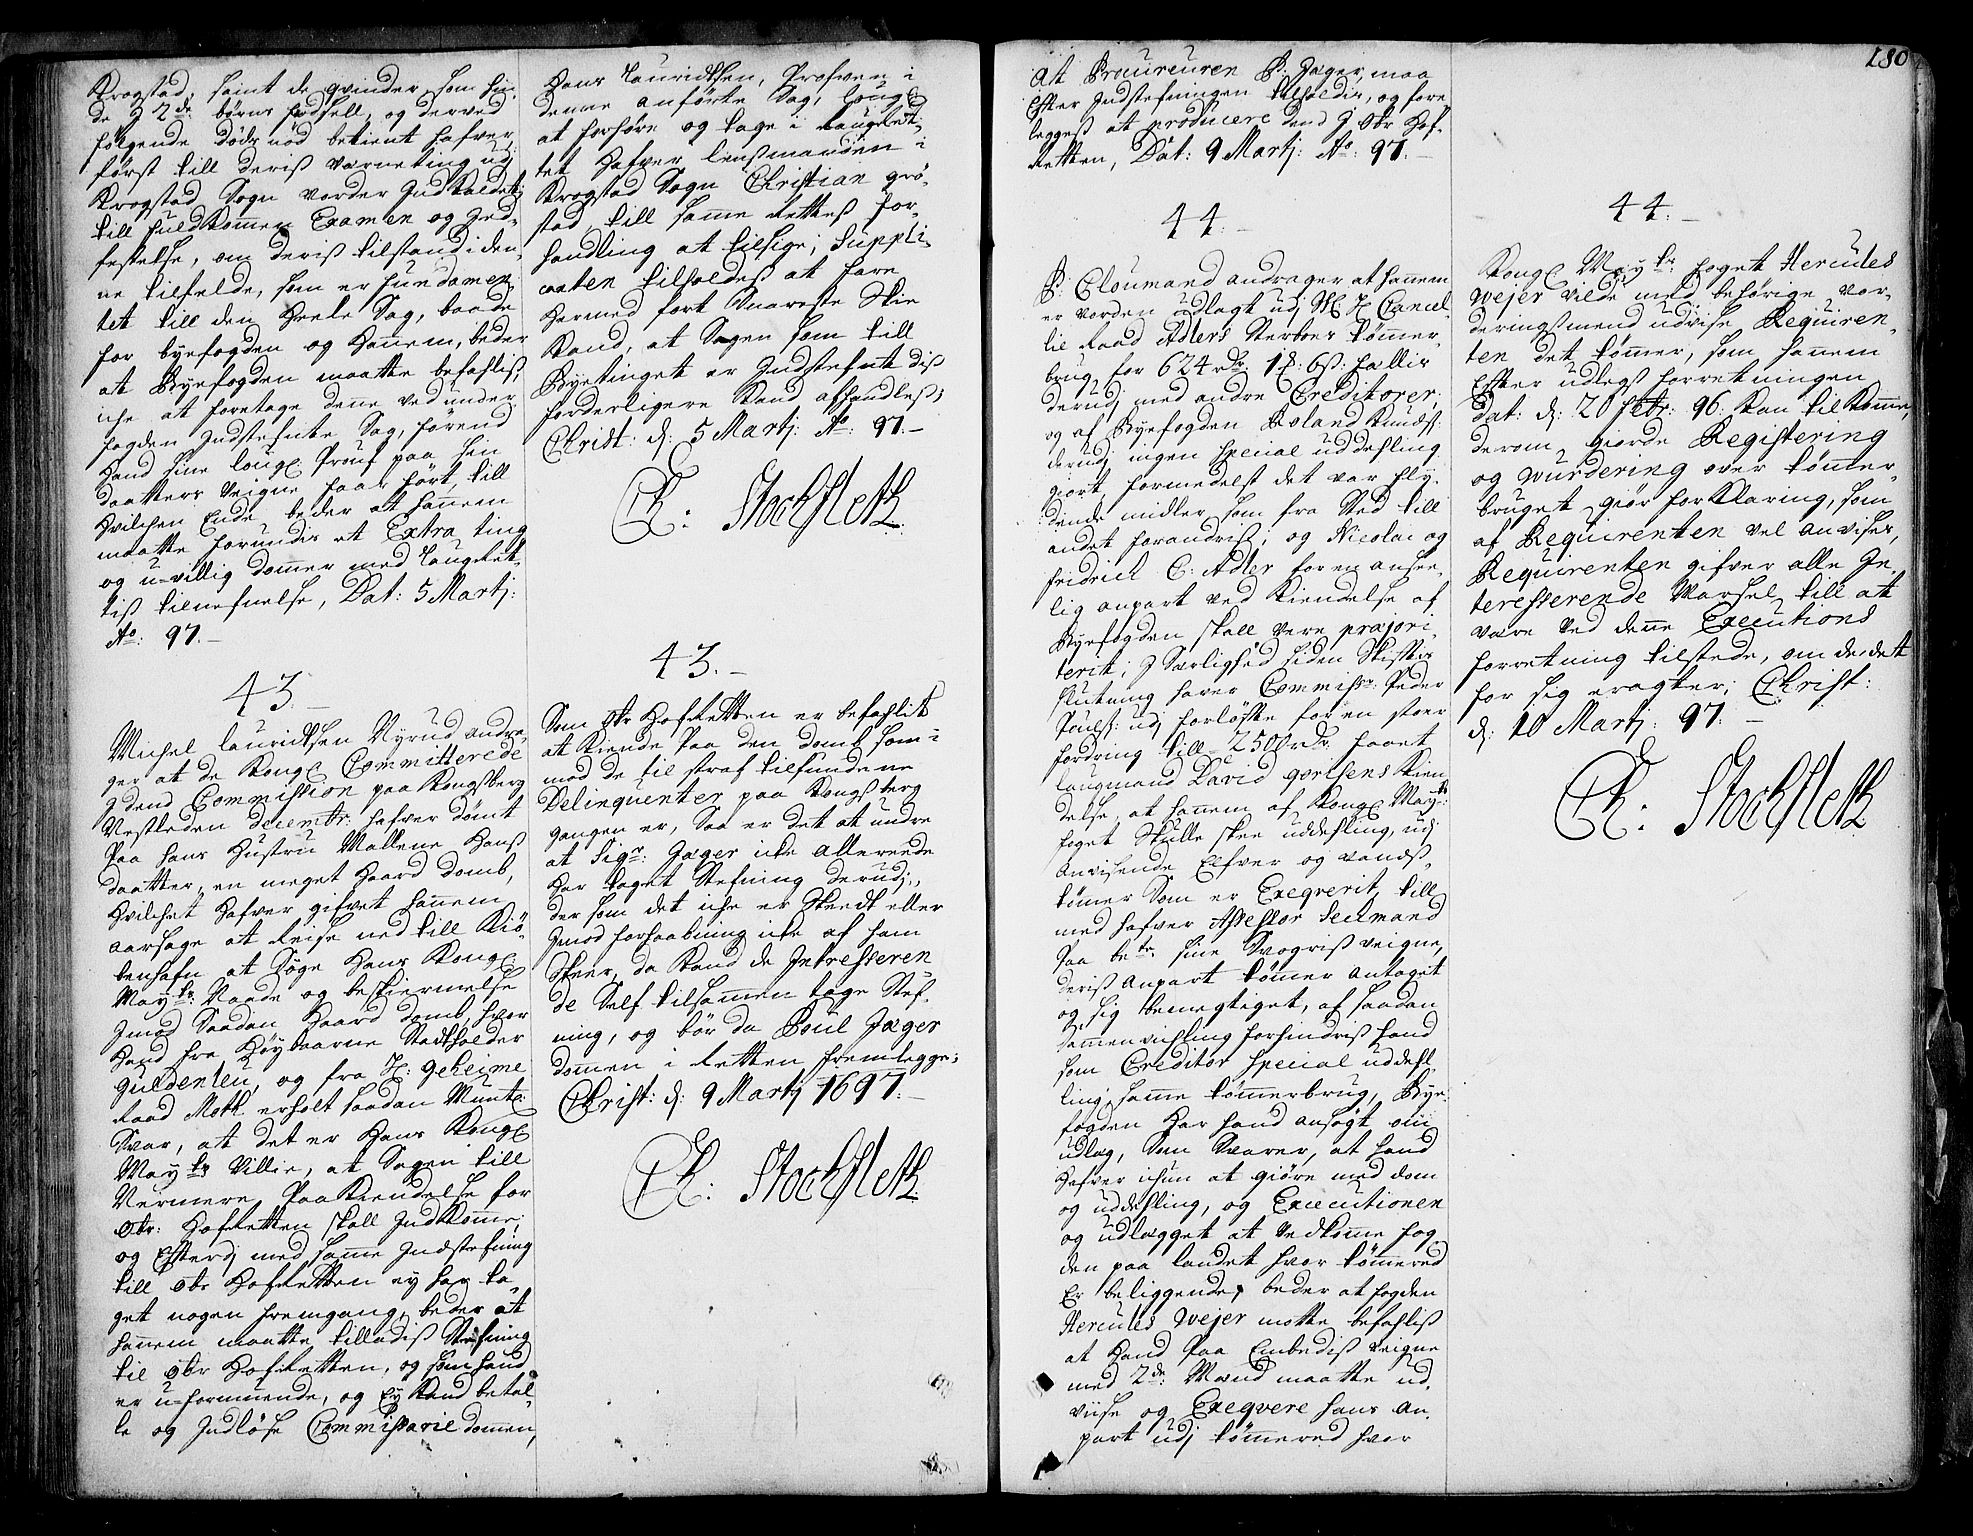 Krogstad, samt de qvinder som hin,
de J 2de børns fødsell, og derved
følgende dødsnød betient hafver,
først till deris værneting udj
Krogstad Sogn vorder Indkaldet,
till fuldkommen Examen og Ged,
festelse, om deris tilstand i den,
ne tilfelde, som er fundamen,
tet till den heele Sag, baade
for byefogden og hannem, beder
at Byefogden maatte befahlis,
iche at foretage denne ved under
fogden Indstefnte Sag, førend
hand sine lougl Prouf paa sin
daatters veigne faar ført, till
hvilchen Ende beder at hannem
maatte forundis et Extra ting
og u-villig dommer med Laugrett,
tis tilnefnelse, Dat: 5 Martj:
Ao: 97.
43.
Michel Lauridtsen Nyrud andra,
ger at de Kongl Committerede
J dend Commission paa Kongsberg
Vestleden decembr: hafver dømt
Paa hans hustru Mallene Hans
daatter, en meget haard domb,
hvilchet hafver gifvet hannem
aarsage at Reise ned till Kiø,
benhafn at søge Hans Kongl
May ts Naade og beskiermelse
Jmod Saadan haard domb, hvor
hand fra Høybaarne Stadtholder
Guldenleu, og fra H: geheime
Raad Moth erholt saadan Muntl:
Svar, at det er Hans Kongl
May ts Villie, at Sagen till
Nermere Paakiendelse for
obr: Hofretten skall Indkomme;
og Efterdj med samme Indstefning
till obr Hofretten ey har ta,
get nogen fremgang, beder at
hannem maatte tilladis Stefning
til obr Hofretten, og som hand
er u-formuende, og Ey Kand betal,
le og Indløse Commissarie dommen,
Hans Lauridtsen, Profven i
denne anførte Sag, lougl
at forhøre og tage i laugrett,
tet hafver lensmanden i
Krogstad Sogn Christian grø,
stad till samme Rettes for,
handling at tilsige; Suppli,
canten tilholdes at fare
hermed fort Snareste Skie
Kand, at Sagen som till
Byetinget er Indstefnt dis
forderligere Kand afhandles;
Christ: d: 5 Martj: Ao: 97.
CH: Stockfleth.
43.
Som obr Hofretten er befahlit
at kiende Paa den domb som i
mod de til straf tilfundene
Delinquenter paa Kongsberg
gangen er, Saa er det at undre
at Sigr: Jæger iche allereede
har taget Stefning derudj,
der som det iche er Skeedt eller
Jmod forhaabning iche af ham
Skeer, da Kand de Intresseren,
de Self tilsammen tage Stef,
ning, og bør da Poul Jæger
dommen i Retten fremlegge;
Christ: d: 9 Martj 1697.
CH: Stockfleth.
180
at Procureuren P: Jæger, maa
Efter Indstefningen tilholdis, og fore,
legges at producere dend J obr Hof,
Retten, Dat: 9 Martj: Ao: 97.
44.
P: Cloumand andrager at hannem
er vorden udlagt udj Sl H Cancel,
lie Raad Adlers Sterboes tømmer,
brug for 624 rdr 1 : 6s: fallit
derudj med andre Creditorer
og af Byefogden Roland Knuds:
derudj ingen special uddehling
giort, formedelst det var fly,
dende midler som fra Sted till
andet forandris; og Nicolai og
fridrich C: Adler for en ansee,
lig anpart ved Kiendelse af
Byefogden skall vere præjori,
terit; J Særlighed siden Skiftis
slutning haver Commissr: Peder
Pouls: udj forløfte for en stoer
fordring till 2500 rdr faaet
Laugmand David gortsens Kien
delse, at hannem af Kongl May ts
foget Skulle skee uddehling, udj
anvisende Elfver og vands,
tømmer Som er Exeqverit, till
med hafver Assessor Seemand
Paa bete sine Svogris veigne,
deris anpart tømmer antaget
og sig bemegtiget, af saadan
Sammenvichling forhindris hand
som Creditor special uddehl,
ling samme tømmerbrug, Bye,
fogden har hand ansøgt om
udlæg, Som Svarer, at hand
hafver ichun at giøre med dom
og uddehling, og Executionen
og udlægget at vedkomme fog,
den paa landet hvor tømmered
Er beliggende; beder at fogden
Hercules Wejer motte befahlis
at hand Paa Embedis Veigne
med 2de Mænd maatte ud,
viise og Exeqvere hans an,
part udj tømmered hvor
44.
Kongl May ts foget Hercules
Wejer vilde med behørige vor,
deringsmend udvise Requiren,
ten det tømmer, som hannem
Efter udlegs forretningen
dat: d: 20 febr: 96. kan tilkomme,
derom giorde Registering
og Wurdering over tømmer,
bruget giør forklaring, som
af Requirenten vel anvises,
Requirenten gifver alle In,
teresserende Varsel till at
være ved denne Executions
forretning tilstede, om de det
for sig eragter; Christ:
d: 10 Martj: 97.
CH: Stockfleth